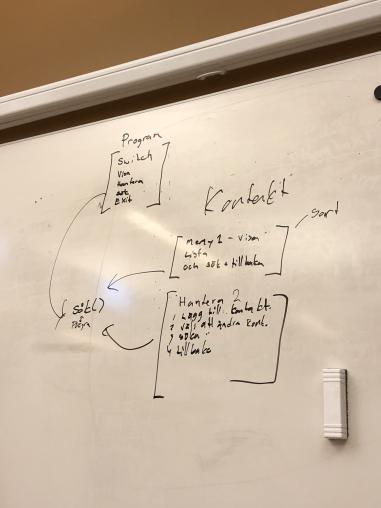 Program
Switch
Visa
Hantera
sök
Exit
Kontakt
Sort
meny 1 - visa
lista
och sök + tillbaka
Sök()
Hantera 2
1 Lägg till kontakt.
2 välj att ändra kont.
3 söka
4 tillbaka